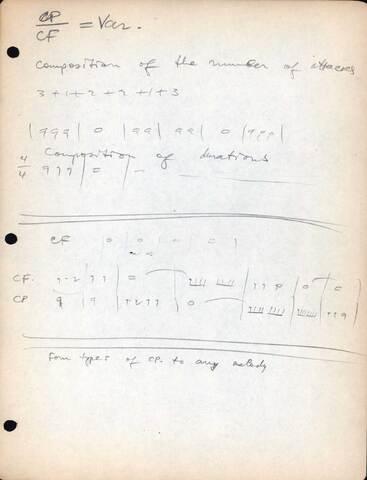 CP
CF = Var.
Composition of the number of attacks
3+1+2+2+1+3
Composition of durations
4
4
CF
CF.
CP
Four types of CP. to any melody